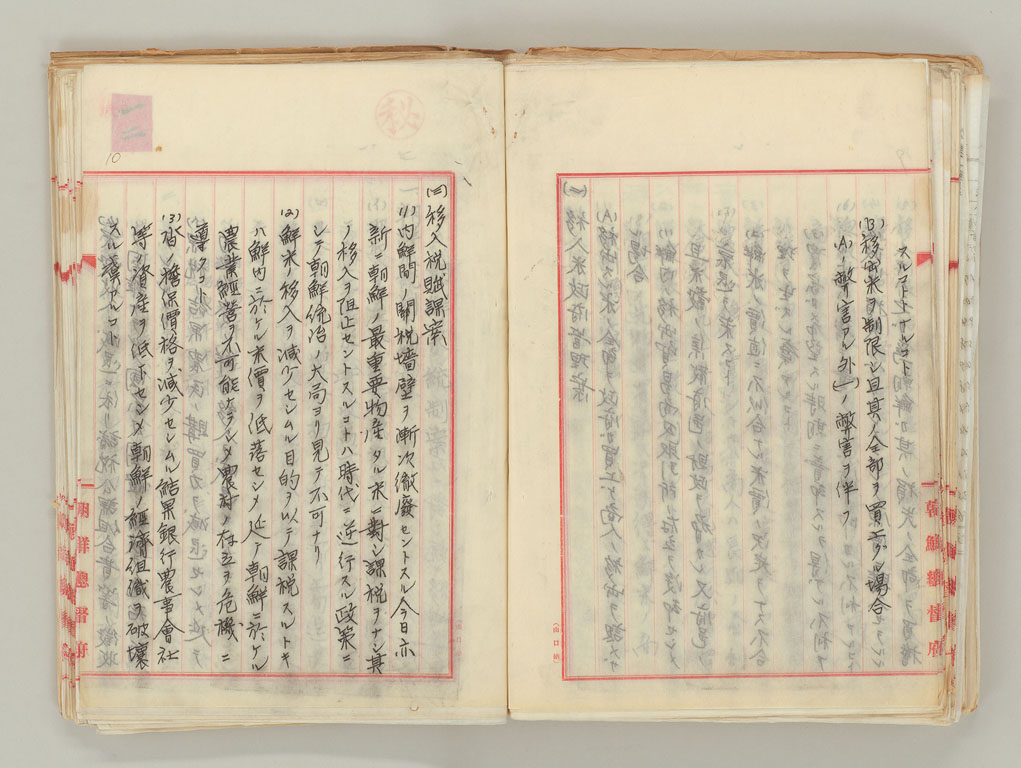 スルコトトナルコト
(B)移出米ヲ制限シ且其ノ全部ヲ買上グル場合
(A)ノ弊害アル外(一)ノ弊害ヲ伴フ
朝鮮總督府
秘
一二
10
(三)移入税賦課案
(1)内鮮間ノ關税墻壁ヲ漸次徹廢セントスル今日亦
新ニ朝鮮ノ最重要物産タル米ニ對シ課税ヲナシ其
ノ移入ヲ阻止セントスルコトハ時代ニ逆行スル政策ニ
シテ朝鮮統治ノ大局ヨリ見テ不可ナリ
(2)鮮米ノ移入ヲ減少セシムル目的ヲ以テ課税スルトキ
ハ鮮内ニ於ケル米價ヲ低落セシメ延テ朝鮮ニ於ケル
農業經營ヲ不可能ナラシメ農村ノ存立ヲ危機ニ
導クコト
(3)沓ノ擔保價格ヲ減少セシムル結果銀行農事會社
等ノ資産ヲ低下セシメ朝鮮ノ經濟組織ヲ破壞
スル虞アルコト